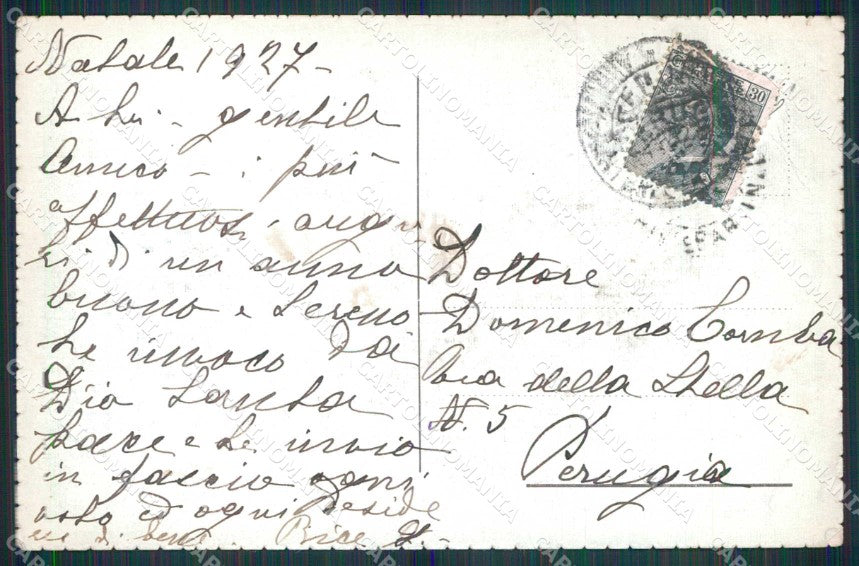 Natale 1927 -
A Lei - gentile
Amico - i più
affettuosi augu
ri di un anno
buono e sereno
Le invoco da
Dio Santa
pace e Le invio
in fascio ogni
voto ed ogni deside
rio di bene. Bice
30
Dottore
Domenico
Via della Stella
N. 5
Perugia
CARTOLINOMANIA